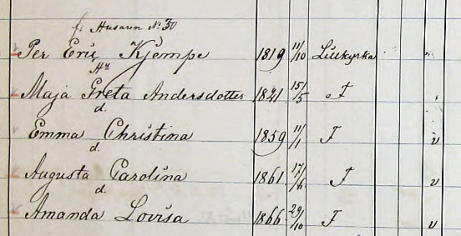 f. Husaren No 30
Per Eric Kjempe 1819 11/10 Lillkyrka
Hu
Maja Greta Andersdotter 1821 15/5 F
d.
Emma Christina 1859 11/1 F v
d.
Augusta Carolina 1861 F v
d.
Amanda Lovisa 1866 29/10 F v